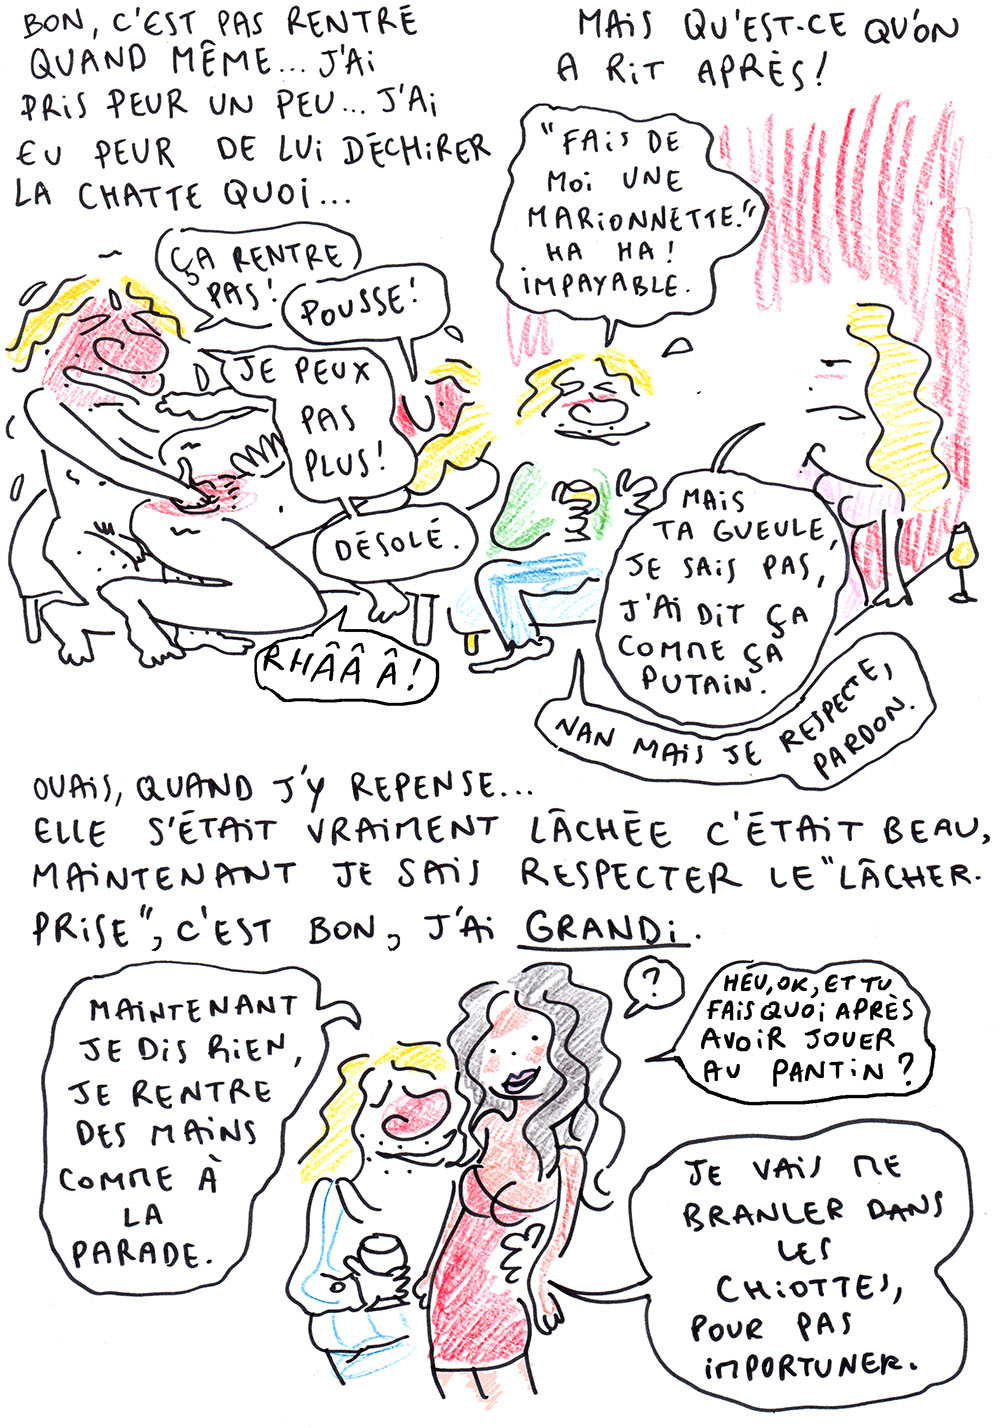 BON, C'EST PAS RENTRÉ
QUAND MÊME... J'AI
PRIS PEUR UN PEU... J'AI
EU PEUR DE LUI DÉCHIRER
LA CHATTE QUOI...
ÇA RENTRE
PAS!
POUSSE!
JE PEUX
PAS
PLUS!
DÉSOLÉ.
RHÂÂÂ!
MAIS QU'EST-CE QU'ON
A RIT APRÈS!
"FAIS DE
MOI UNE
MARIONNETTE."
HA HA!
IMPAYABLE.
MAIS
TA GUEULE,
JE SAIS PAS,
J'AI DIT ÇA
COMME ÇA
PUTAIN.
NAN MAIS JE RESPECTE,
PARDON.
OUAIS, QUAND J'Y REPENSE...
ELLE S'ÉTAIT VRAIMENT LÂCHÉE C'ÉTAIT BEAU,
MAINTENANT JE SAIS RESPECTER LE "LÂCHER-
PRISE", C'EST BON, J'AI GRANDI.
MAINTENANT
JE DIS RIEN,
JE RENTRE
DES MAINS
COMME À
LA
PARADE.
?
HEU, OK, ET TU
FAIS QUOI APRÈS
AVOIR JOUER
AU PANTIN?
JE VAIS ME
BRANLER DANS
LES
CHIOTTES,
POUR PAS
IMPORTUNER.